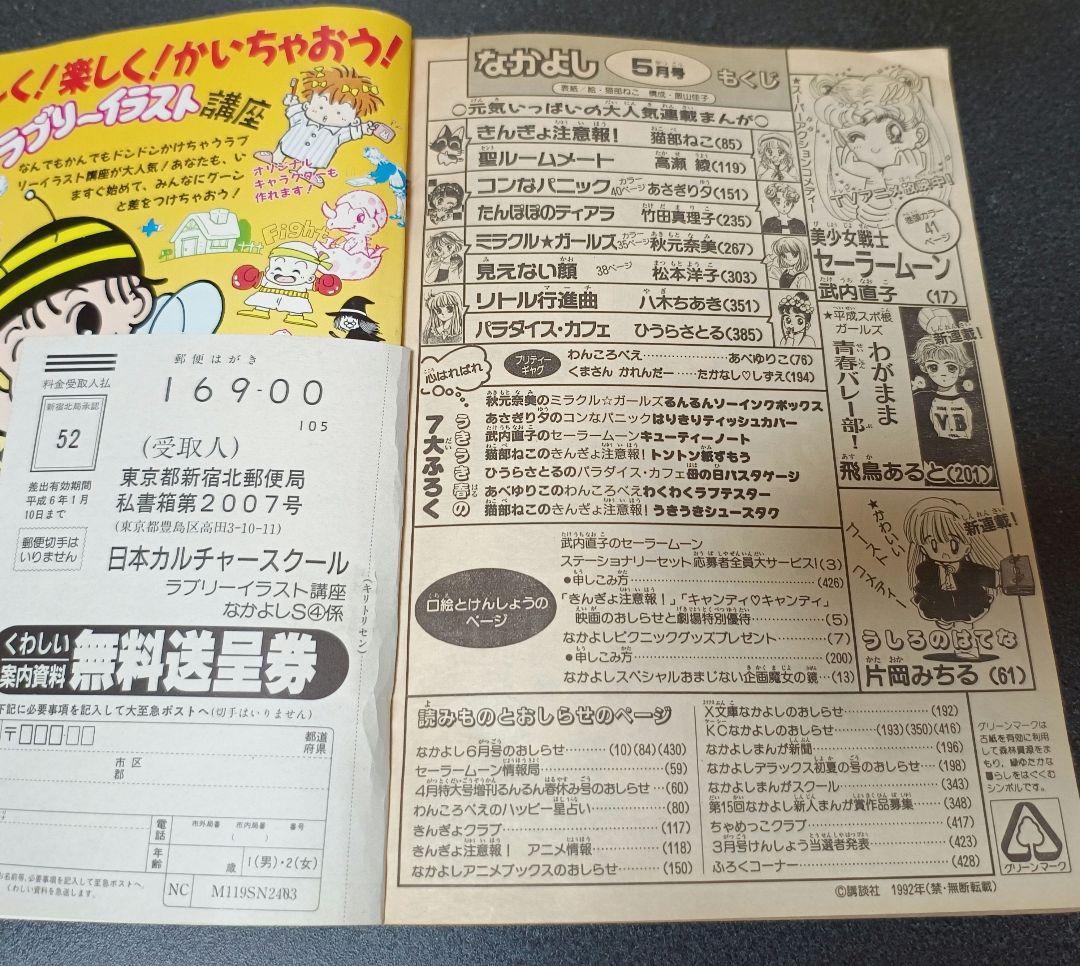 く!楽しく!かいちゃおう!
ラブリーイラスト講座
なんでもかんでもドンドンかけちゃうラブ
リーイラスト講座が大人気!あなたも、い
ますぐ始めて、みんなにグーン
と差をつけちゃおう!
オリジナル
キャラクターも
作れます!
Fight
郵便はがき
料金受取人払
新宿北局承認
52
差出有効期間
平成6年1月
10日まで
郵便切手は
いりません
169-00
105
(受取人)
東京都新宿北郵便局
私書箱第2007号
(東京都豊島区高田3-10-11)
日本カルチャースクール
ラブリーイラスト講座
なかよしS④係
(キリトリセン)
くわしい
案内資料
無料送呈券
下記に必要事項を記入して大至急ポストへ(切手はいりません)
〒
都道
府県
市区
郡
電話
市外局番 市内局番 番号
( )
年齢
歳
1(男)・2(女)
お名前等、必要事項を記入して至急ポストへ。
くわしい資料を急送します。
NC
M119SN2403
なかよし 5月号 もくじ
表紙/絵・猫部ねこ 構成・飯山佳子
○元気いっぱいの大人気連載まんが○
きんぎょ注意報! 猫部ねこ(85)
聖ルームメート 高瀬綾(119)
コンなパニック カラー40ページ あさぎり夕(151)
たんぽぽのティアラ 竹田真理子(235)
ミラクル★ガールズ カラー35ページ 秋元奈美(267)
見えない顔 38ページ 松本洋子(303)
リトル行進曲 八木ちあき(351)
パラダイス・カフェ ひうらさとる(385)
プリティー
ギャグ
わんころべえ……あべゆりこ(76)
くまさん かれんだー……たかなし♡しずえ(194)
心はればれ
うきうき春の
7大ふろく
秋元奈美のミラクル☆ガールズるんるんソーイングボックス
あさぎり夕のコンなパニックはりきりティッシュカバー
武内直子のセーラームーンキューティーノート
猫部ねこのきんぎょ注意報!トントン紙ずもう
ひうらさとるのパラダイス・カフェ母の日バスケージ
あべゆりこのわんころべえわくわくラフテスター
猫部ねこのきんぎょ注意報!うきうきシューズタグ
口絵とけんしょうの
ページ
武内直子のセーラームーン
ステーショナリーセット応募者全員大サービス!(3)
●申しこみ方……(426)
「きんぎょ注意報!」「キャンディ♡キャンディ」
映画のおしらせと劇場特別優待……(5)
なかよしピクニックグッズプレゼント……(7)
●申しこみ方……(200)
なかよしスペシャルおまじない企画魔女の鏡…(13)
TVアニメ放映中!
巻頭カラー
41
ページ
美少女戦士
セーラームーン
武内直子
(17)
★平成スポ根
ガールズ
新連載!
わがまま
青春バレー部!
V.B
飛鳥あると(201)
★かわいい
ゴースト
コメディー
新連載!
うしろのはてな
片岡みちる(61)
読みものとおしらせのページ
なかよし6月号のおしらせ……(10)(84)(430)
セーラームーン情報局……(59)
4月特大号増刊るんるん春休み号のおしらせ…(60)
わんころべえのハッピー星占い……(80)
きんぎょクラブ……(117)
きんぎょ注意報! アニメ情報……(118)
なかよしアニメブックスのおしらせ……(150)
X文庫なかよしのおしらせ……(192)
KCなかよしのおしらせ……(193)(350)(416)
なかよしまんが新聞……(196)
なかよしデラックス初夏の号のおしらせ…(198)
なかよしまんがスクール……(343)
第15回なかよし新人まんが賞作品募集…(348)
ちゃめっこクラブ……(417)
3月号けんしょう当選者発表……(423)
ふろくコーナー……(428)
グリーンマークは
古紙を有効に利用
して森林資源をま
もり、緑ゆたかな
暮らしをはぐくむ
シンボルです。
グリーンマーク
©講談社 1992年(禁・無断転載)